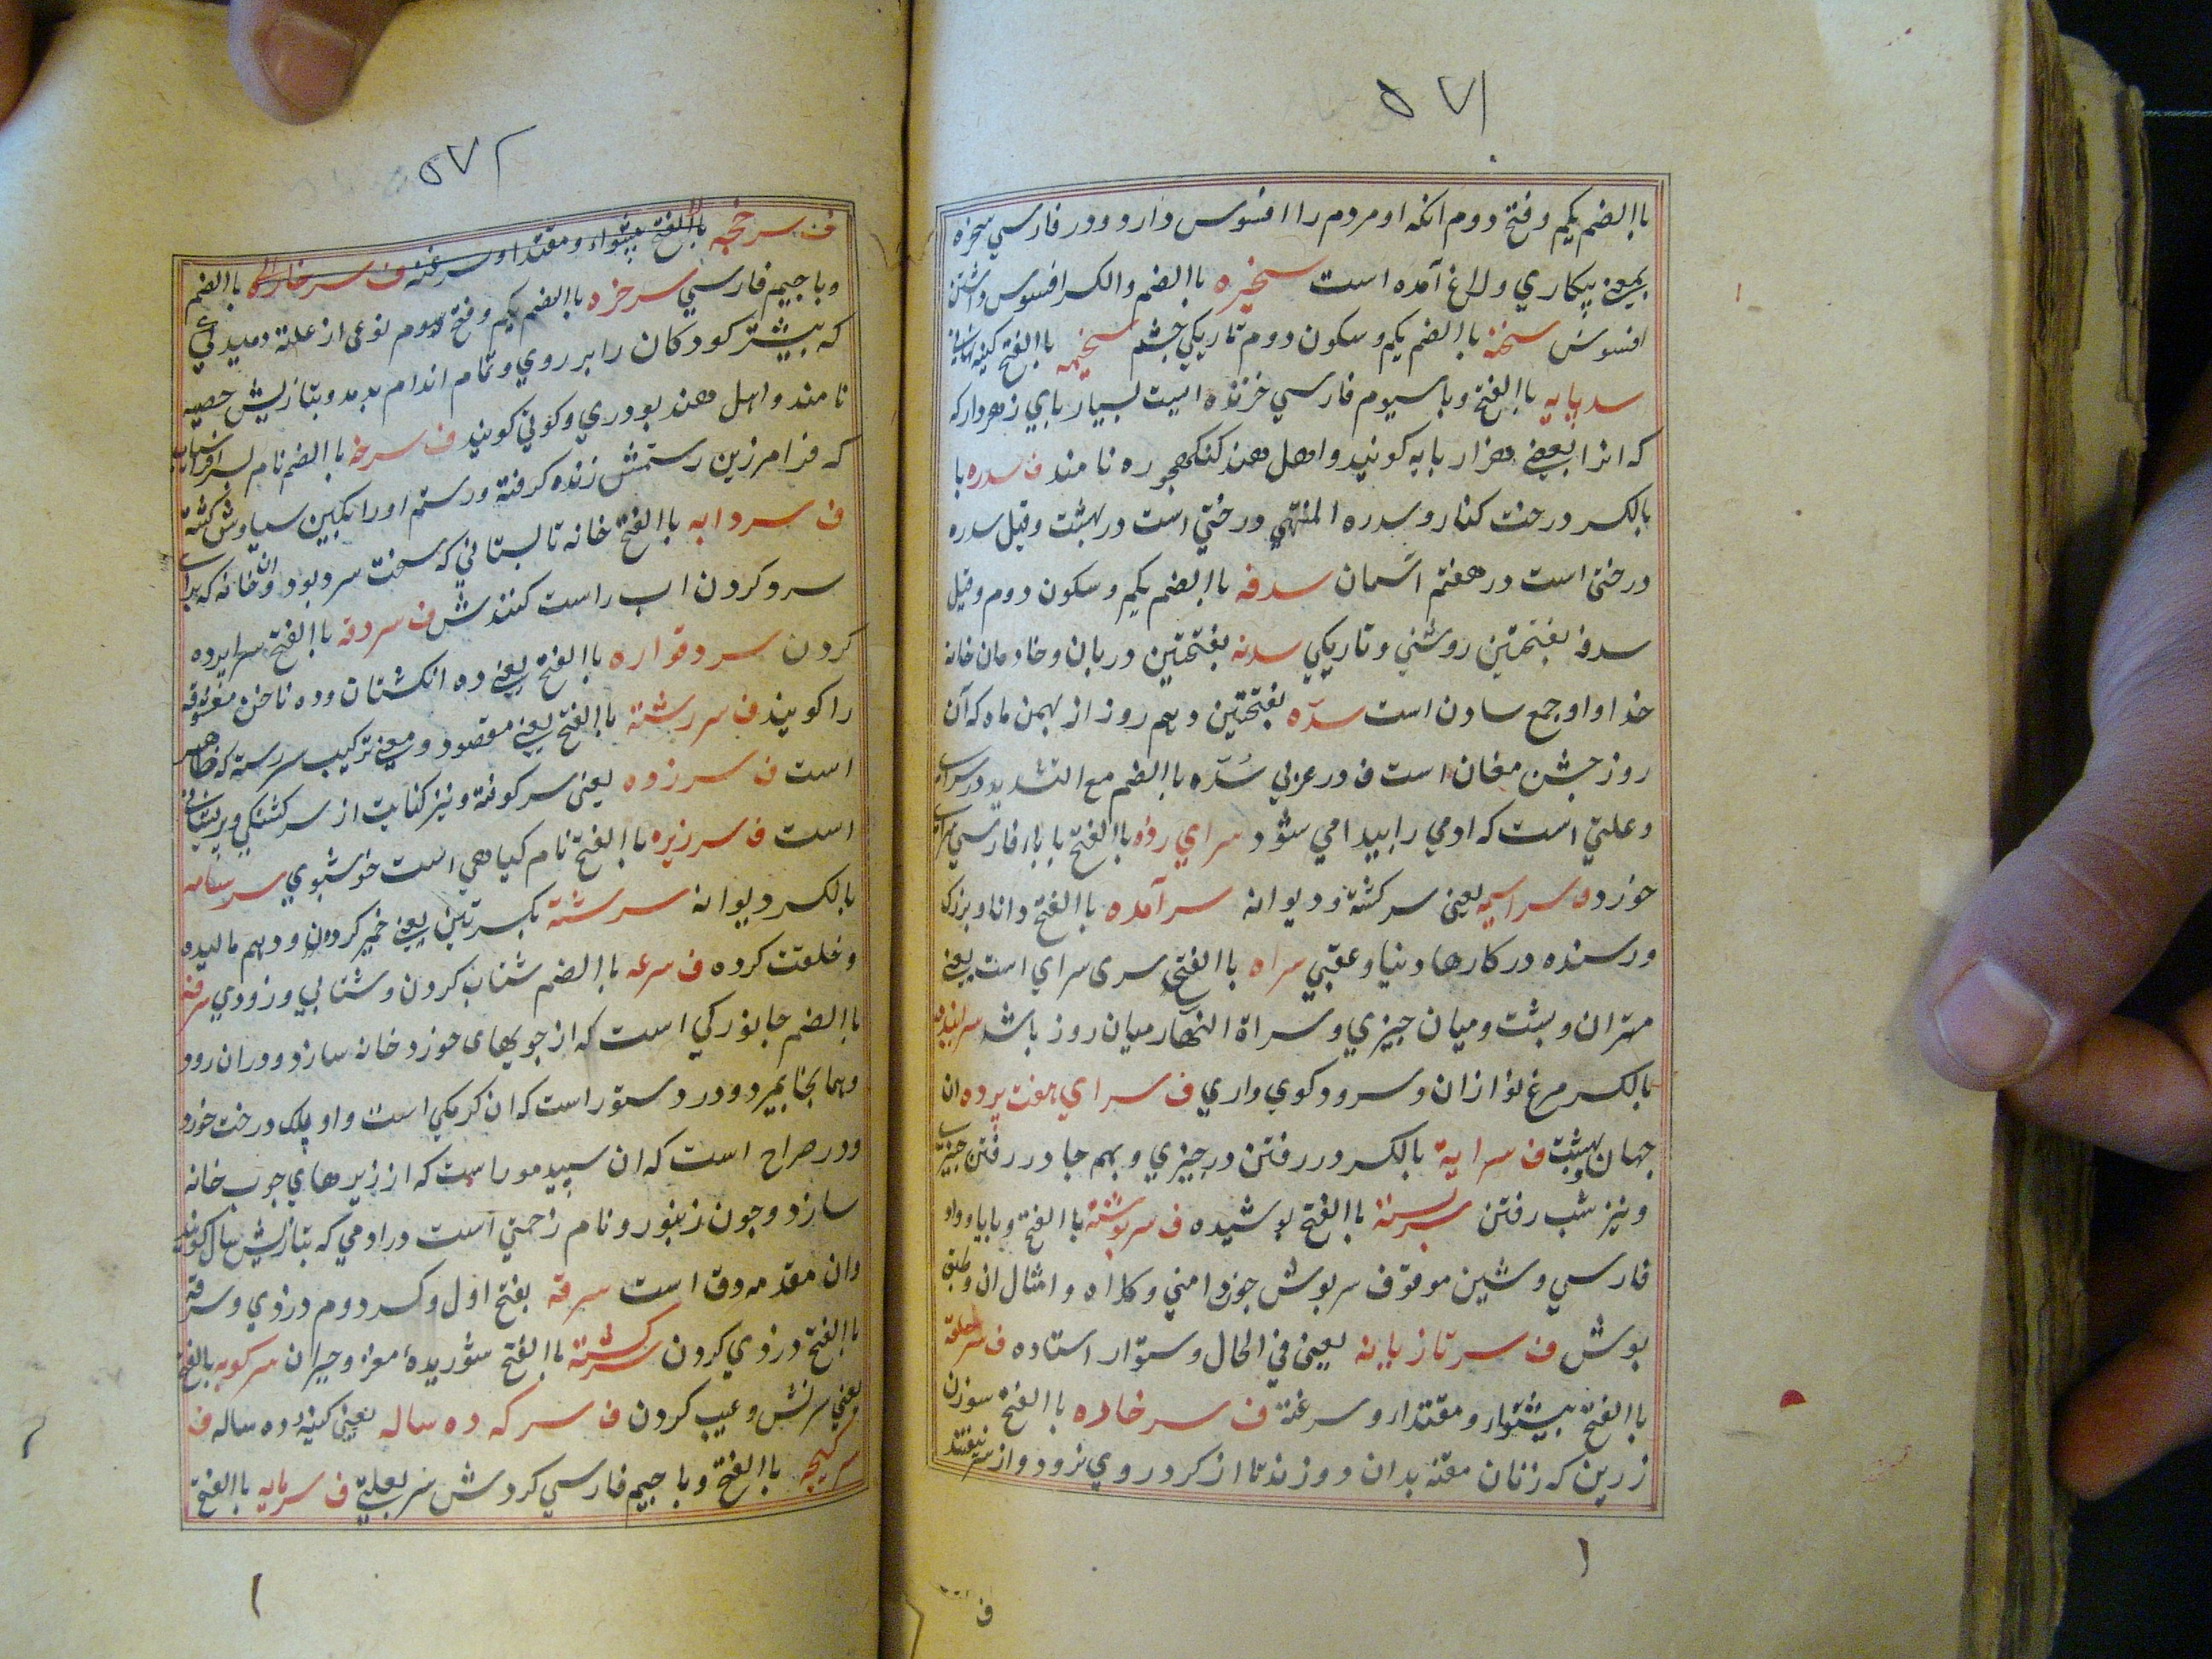 ۵۷۱
باالضم یکم و فتح دوم انکه او مردم را افسوس دارد و در فارسی سخره
بمعنی بیکاری ولاغ آمده است سخیره باالضم والکسر افسوس داشتن
افسوس سخنه باالضم یکم وسکون دوم تاریکی چشم سخیمه باالفتح کینه
سدپایه باالفتح وبا سیوم فارسی خزنده ایست بسیار پای زهردار که
که انرا بعضی هزار پایه کویند واهل هند کنکهجوره نامند ف سدره با
بالکسر درخت کنار وسدره المنتهی درختی است در بهشت وقیل سدره
درختی است در هفتم اسمان سدفه باالضم یکم وسکون دوم وقیل
سدف بفتحتین روشنی وتاریکی سدنه بفتحتین دربان وخادمان خانه
خدا واو جمع سادن است سده بفتحتین دهم روز از بهمن ماه که آن
روز جشن مغان است ف در عربی سُدّه باالضم مع التشدید در سرای
وعلتی است که ادمی را پیدا می شود سرای رزه باالفتح با با فارسی
خورده سراسیمه یعنی سرکشته ودیوانه سرآمده باالفتح دانا وبزرک
ورسنده در کارها دنیا وعقبی سراه باالفتح سری سرای است یعنی
مهتران وپشت ومیان چیزی وسراة النهار میان روز باشد سراینده
بالکسر مرغ نوازان وسرود کوی واری ف سرای هفت پرده ان
جهان بهشت ف سرایة بالکسر در رفتن در چیزی وبهم جا در رفتن چیزی
ونیز شب رفتن سربسته باالفتح پوشیده ف سرپوشنه باالفتح وبا با وواو
فارسی وشین موقوف سرپوش چون دامنی وکلاه وامثال ان وطبق
پوش ف سر تازیانه یعنی فی الحال وستوار استاده ف سرحلقه
باالفتح پیشوا ومقتدا وسرغنه ف سرخاره باالفتح سوزن
زرین که زنان مقنه بدان دوزند تا از کرد روی نرود واز سر نیفتد
ف
۵۷۲
ف سرخجه باالفتح پیشواء ومقتدا وسرغنه ف سرخاره باالضم
وبا جیم فارسی سرخزه باالضم یکم وفتح سوم نوعی از علتها دمیدنی
که بیشتر کودکان را بر روی وتمام اندام بدمد وبتازیش حصبه
نامند واهل هند بودری وکونی کویند ف سرخه باالضم نام پسر افراسیاب
که فرامرز بن رستمش زنده کرفته ورستم او را بکین سیاوش کشته
ف سردابه باالفتح خانه تابستانی که سخت سرد بود وان خانه که برای
سرد کردن اب راست کنندش ف سردقه باالفتح سراپرده
کردن سردقواره باالفتح یعنی ده انکشتان وده ناخن معشوقه
را کویند ف سررشته باالفتح یعنی مقصود ومعنی ترکیب سررسته که ظاهر
است ف سرزده یعنی سرکوفته ونیز کنایت از سرکشتکی وپریشانی
است ف سرزیره باالفتح نام کیاهی است خوشبوی سرسامه
بالکسر دیوانه سرشته بکسرتین یعنی خمیر کردن ودر هم مالیده
وخلقت کرده ف سرعه باالضم شتاب کردن وشتابی وزودی سرفه
باالضم جانورکی است که از چوبهای خورد خانه سازد ودران رود
وهمانجا بمیرد ودر دستور است که ان کرمکی است واو پلک درخت خورد
ودر صراح است که ان سپید مور است که از زیرهای چوب خانه
سازد وچون زنبور ونام زحمتی است در ادمی که بتازیش سال کویند
وان مقدمه دق است سرقه بفتح اول وکسر دوم دزدی وسرقه
باالفتح دزدی کردن سرکشته باالفتح شوریدهٔ مغز وحیران سرکوبه باالفتح
یعنی سرزنش وعیب کردن ف سرکه ده ساله یعنی کینهٔ ده ساله ف
سرکیجه باالفتح وبا جیم فارسی کردش سر بعلتی ف سرمایه باالفتح